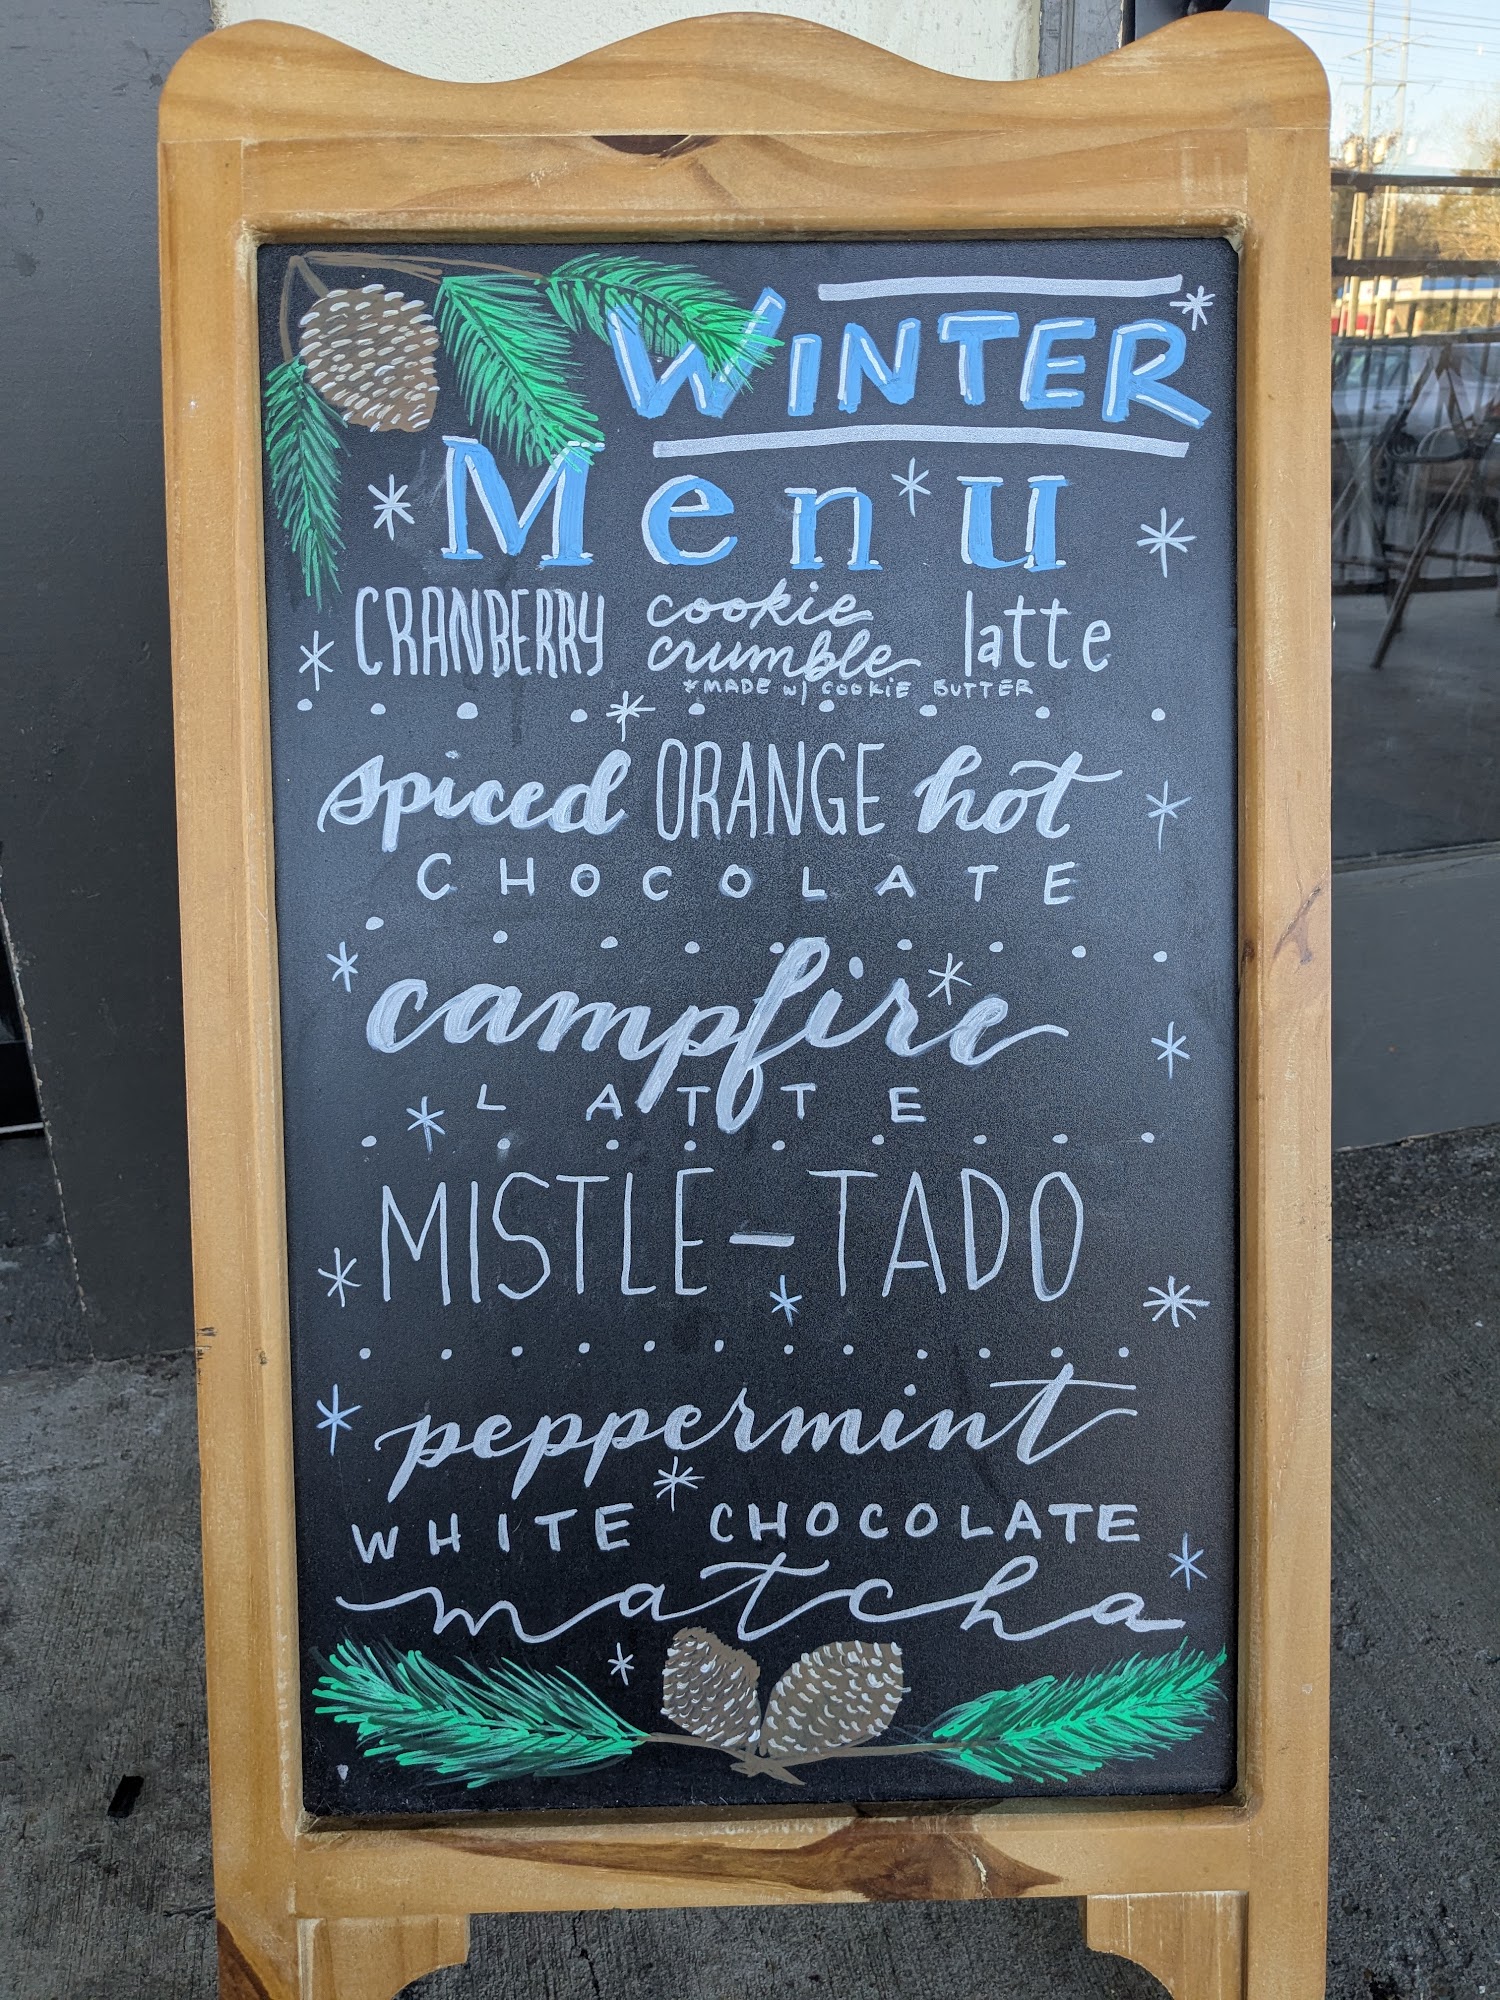 WINTER
Menu
CRANBERRY cookie crumble latte
*MADE w/ COOKIE BUTTER
spiced ORANGE hot
CHOCOLATE
campfire
LATTE
MISTLE-TADO
peppermint
WHITE CHOCOLATE
matcha